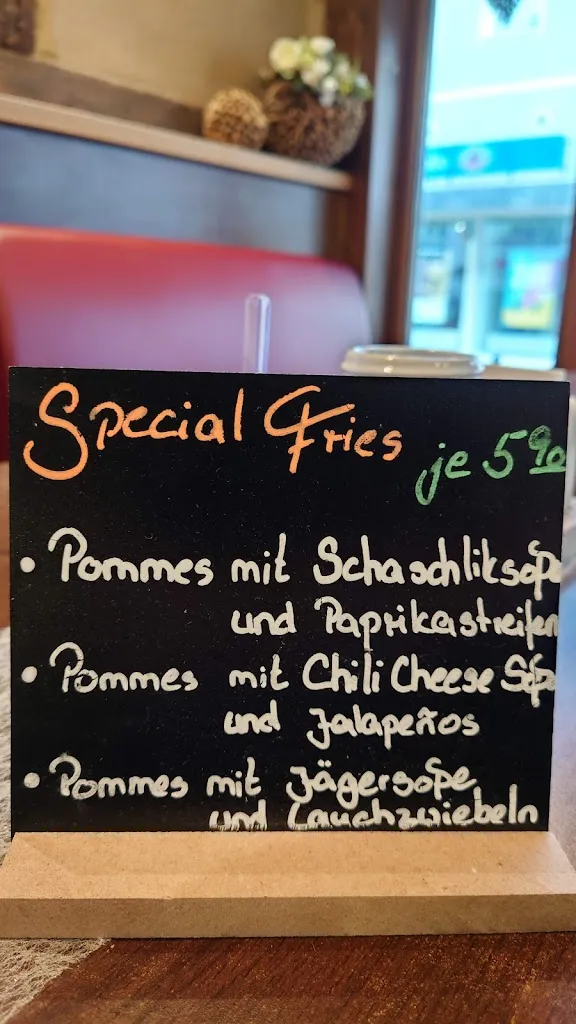 Special Fries je 5,90
• Pommes mit Schaschliksoße
und Paprikastreifen
• Pommes mit Chili Cheese Soße
und Jalapeños
• Pommes mit Jägersoße
und Lauchzwiebeln